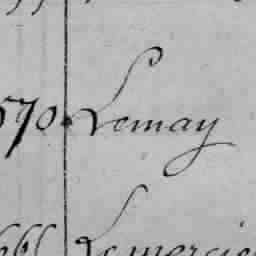 570 Lemay
Lemercie